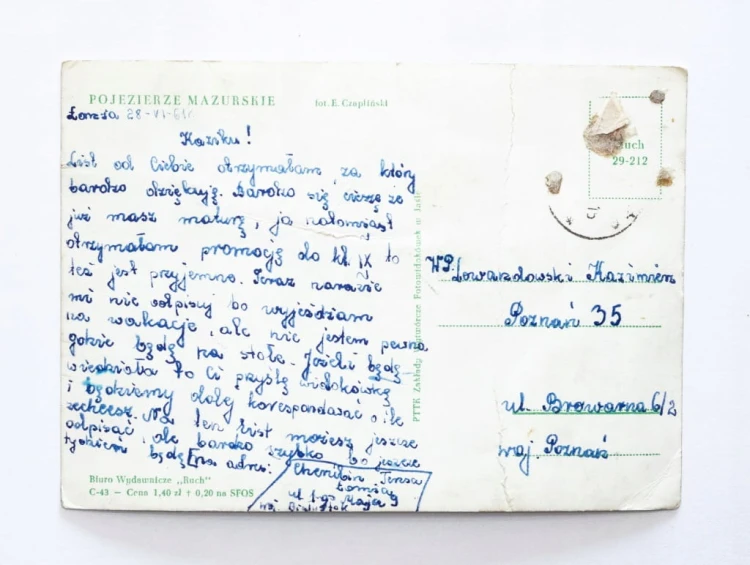 POJEZIERZE MAZURSKIE
fot. E. Czapliński
Łomża 28-VI-61
Kaziku!
List od Ciebie otrzymałam za który
bardzo dziękuję. Bardzo się cieszę że
już masz maturę, ja natomiast
otrzymałam promocję do kl. IX to
też jest przyjemne. Teraz narazie
mi nie odpisuj bo wyjeżdżam
na wakacje, ale nie jestem pewna
gdzie będę na stałe. Jeżeli będę
wiedziała to Ci przyślę widokówkę
i będziemy dalej korespondować o ile
zechcesz. Na ten list możesz jeszcze
odpisać, ale bardzo szybko bo jeszcze
tydzień będę na adres:
Teresa
Łomża
ul. 1-go Maja 9
woj. Białystok
Biuro Wydawnicze „Ruch"
C-43 — Cena 1,40 zł + 0,20 na SFOS
PTTK Zakłady Wytwórcze Fotowidokówek w Jaśle
Ruch
29-212
WP. Lewandowski Kazimierz
Poznań 35
ul. Browarna 6/2
woj. Poznań